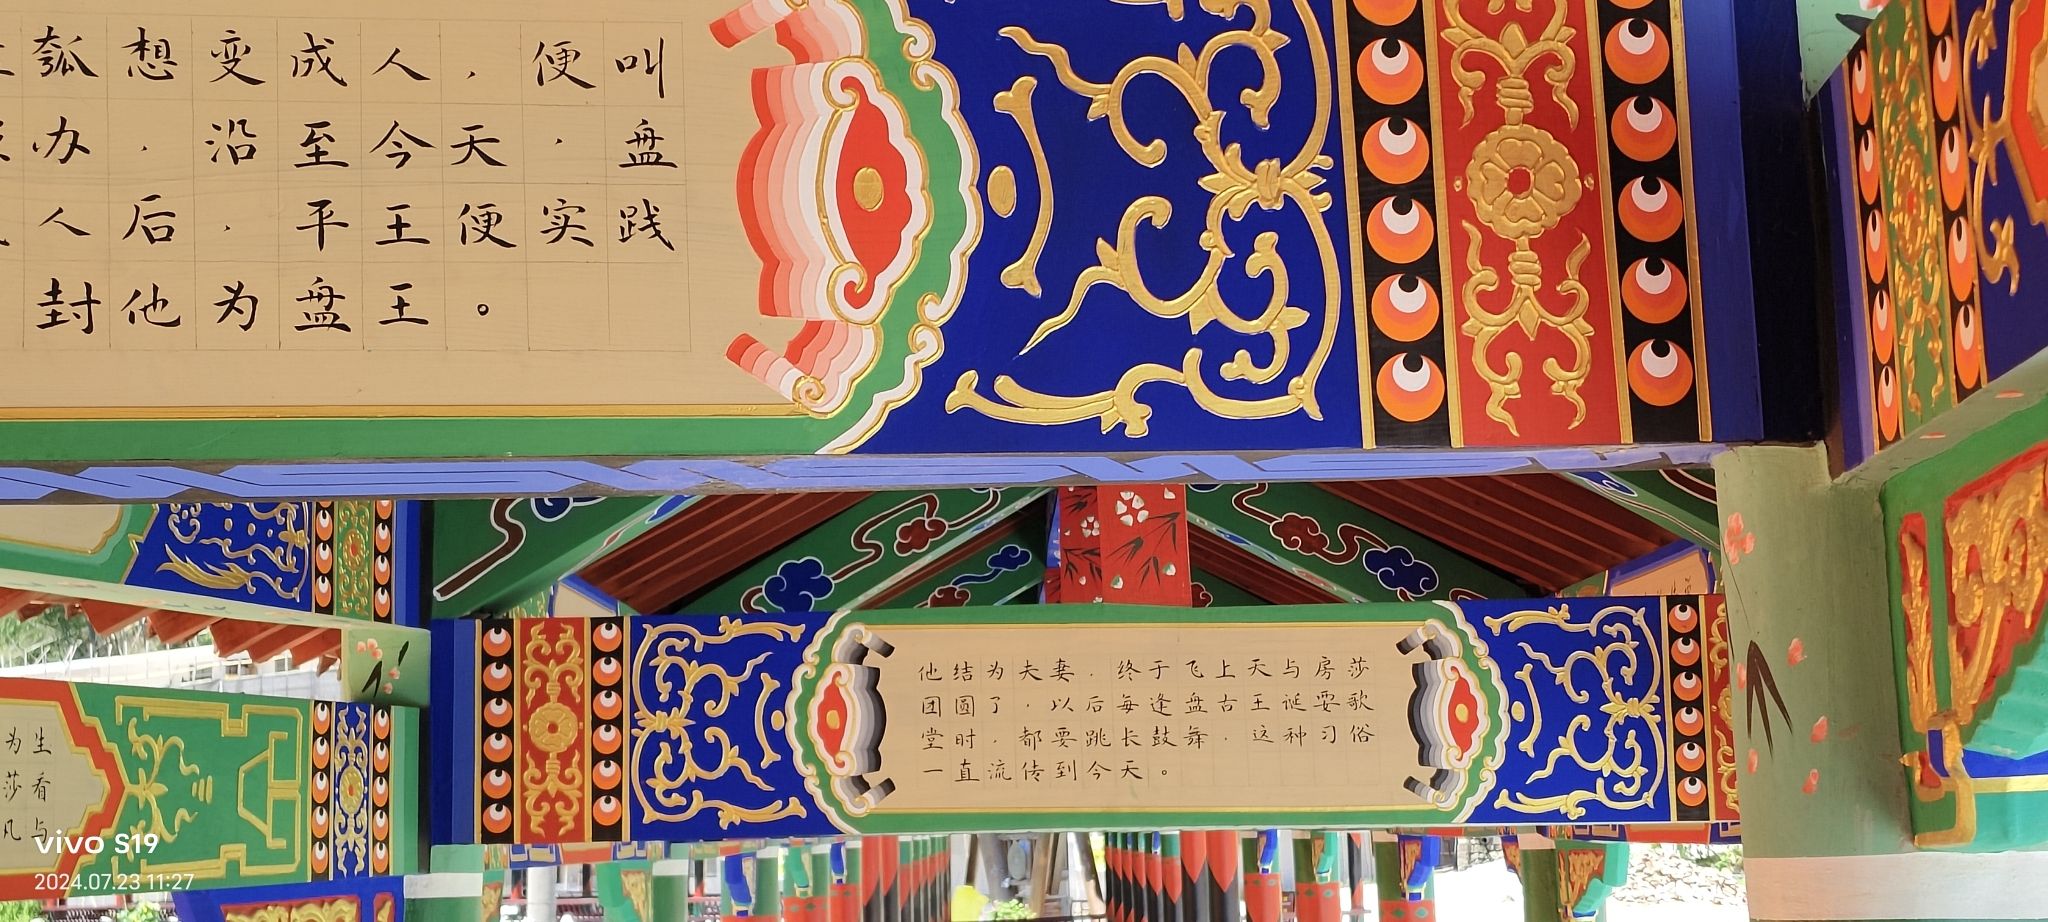 瓠想变成人，便叫
办，沿至今天，盘
人后，平王便实践
封他为盘王。
他结为夫妻，终于飞上天与房莎
团圆了，以后每逢盘古王诞耍歌
堂时，都要跳长鼓舞，这种习俗
一直流传到今天。
为生
莎看
凡与
vivo S19
2024.07.23 11:27